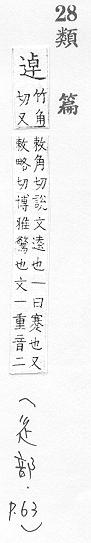 28
類篇
逴
竹角
切又
敕角切說文遠也一曰蹇也又
敕略切博雅驚也文一重音二
(辵部·P.63)